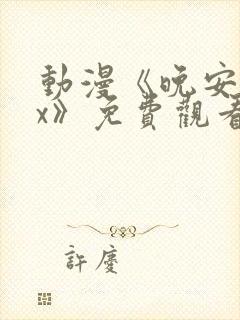 動漫《晚安
x》免費觀看
許慶